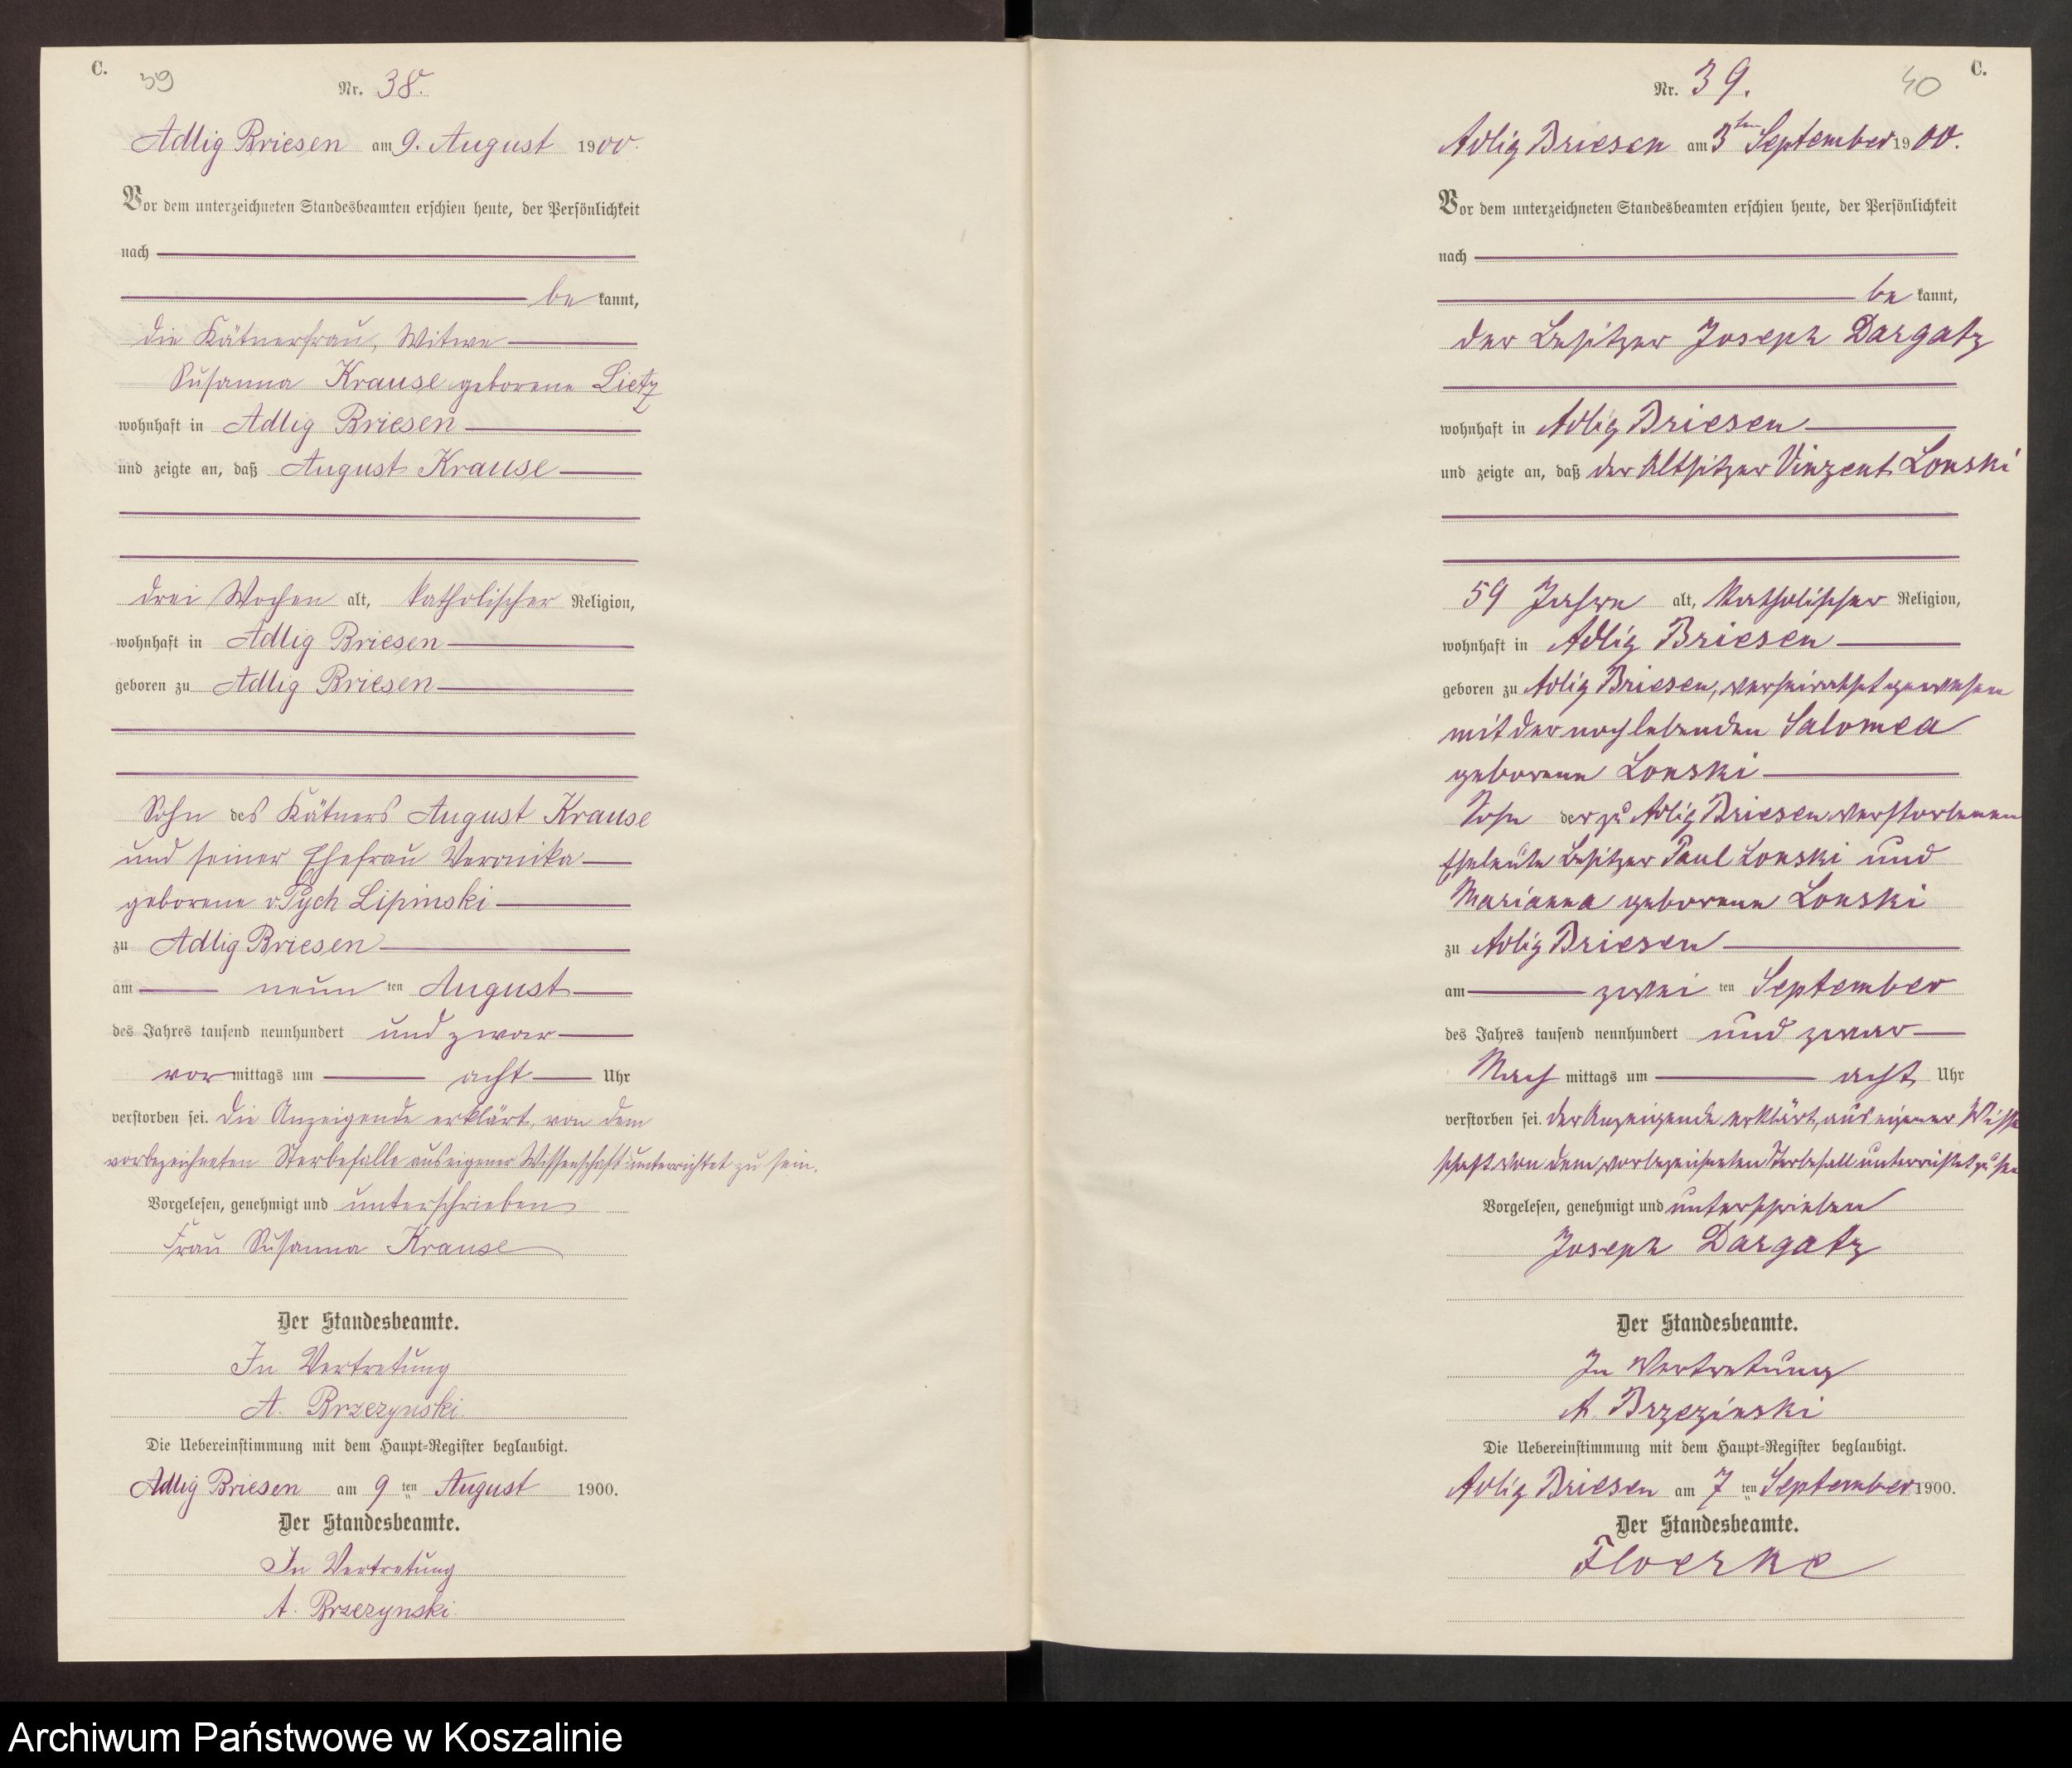 C.
39
Nr. 38.
Adlig Briesen am 9. August 1900.
Vor dem unterzeichneten Standesbeamten erschien heute, der Persönlichkeit
nach
bekannt,
die Kätnerfrau, Witwe
Susanna Krause geborene Lietz
wohnhaft in Adlig Briesen
und zeigte an, daß August Krause
drei Wochen alt, katholischer Religion,
wohnhaft in Adlig Briesen
geboren zu Adlig Briesen
Sohn des Kätners August Krause
und seiner Ehefrau Veronika
geborene v Pych Lipinski
zu Adlig Briesen
am neun ten August
des Jahres tausend neunhundert und zwar
vormittags um acht Uhr
verstorben sei. Die Anzeigende erklärt, von dem
vorbezeichneten Sterbefalle aus eigener Wissenschaft unterrichtet zu sein.
Vorgelesen, genehmigt und unterschrieben
Frau Susanna Krause
Der Standesbeamte.
In Vertretung
A. Brzezynski
Die Uebereinstimmung mit dem Haupt-Register beglaubigt.
Adlig Briesen am 9 ten August 1900.
Der Standesbeamte.
In Vertretung
A. Brzezynski
C.
40
Nr. 39.
Adlig Briesen am 3ten September 1900.
Vor dem unterzeichneten Standesbeamten erschien heute, der Persönlichkeit
nach
bekannt,
der Besitzer Joseph Dargatz
wohnhaft in Adlig Briesen
und zeigte an, daß der Altsitzer Vinzent Lonski
59 Jahre alt, katholischer Religion,
wohnhaft in Adlig Briesen
geboren zu Adlig Briesen, verheirathet gewesen
mit der noch lebenden Salomea
geborene Lonski
Sohn der zu Adlig Briesen verstorbenen
Eheleute Besitzer Paul Lonski und
Marianna geborene Lonski
zu Adlig Briesen
am zwei ten September
des Jahres tausend neunhundert und zwar
Nachmittags um acht Uhr
verstorben sei. Der Anzeigende erklärt, aus eigener Wissen
schaft von dem vorbezeichneten Sterbefall unterrichtet zu sein
Vorgelesen, genehmigt und unterschrieben
Joseph Dargatz
Der Standesbeamte.
In Vertretung
A. Brzezinski
Die Uebereinstimmung mit dem Haupt-Register beglaubigt.
Adlig Briesen am 7 ten September 1900.
Der Standesbeamte.
Floerke
Archiwum Państwowe w Koszalinie